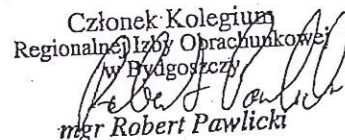 Członek Kolegium
Regionalnej Izby Obrachunkowej
w Bydgoszczy
Robert Pawlicki
mgr Robert Pawlicki